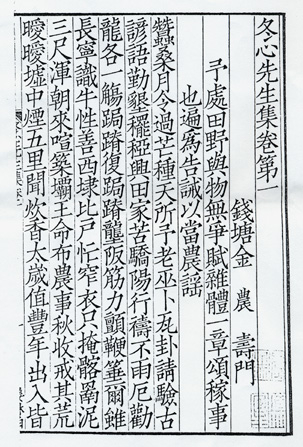 冬心先生集卷第一
錢塘金 農 壽門
予處田野與物無爭賦雜體一章頌稼事
也遍爲告誡以當農謡
蠶桑月今過芒種天所子老巫卜瓦卦請驗古
諺語勤墾䆉稏興田家苦驕陽行禱不雨厄勸
龍各一觴蹋蹐復蹋蹐壟阪筋力顫鞭箠爾雖
長寧識牛性善西埭比戶忙窄衣只掩髂骭泥
三尺渾朝來喧簗壩王命布農事秋收戒其荒
曖曖墟中煙五里聞炊香太歲值豐年出入皆